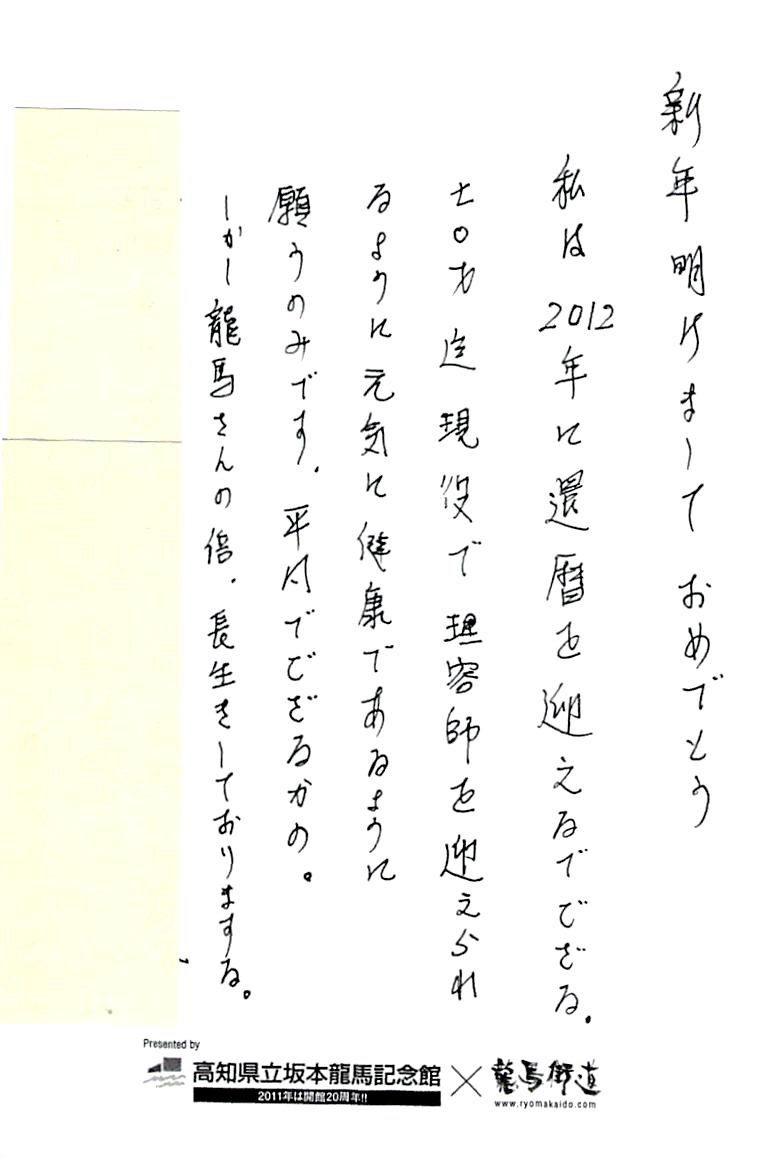 新年明けまして おめでとう
私は2012年に還暦を迎えるでござる。
七〇才迄現役で理容師を迎えられ
るように元気に健康であるように
願うのみです。平凡でござるかの。
しかし龍馬さんの倍、長生きしておりまする。
Presented by
高知県立坂本龍馬記念館×龍馬街道
2011年は開館20周年!!
www.ryomakaido.com